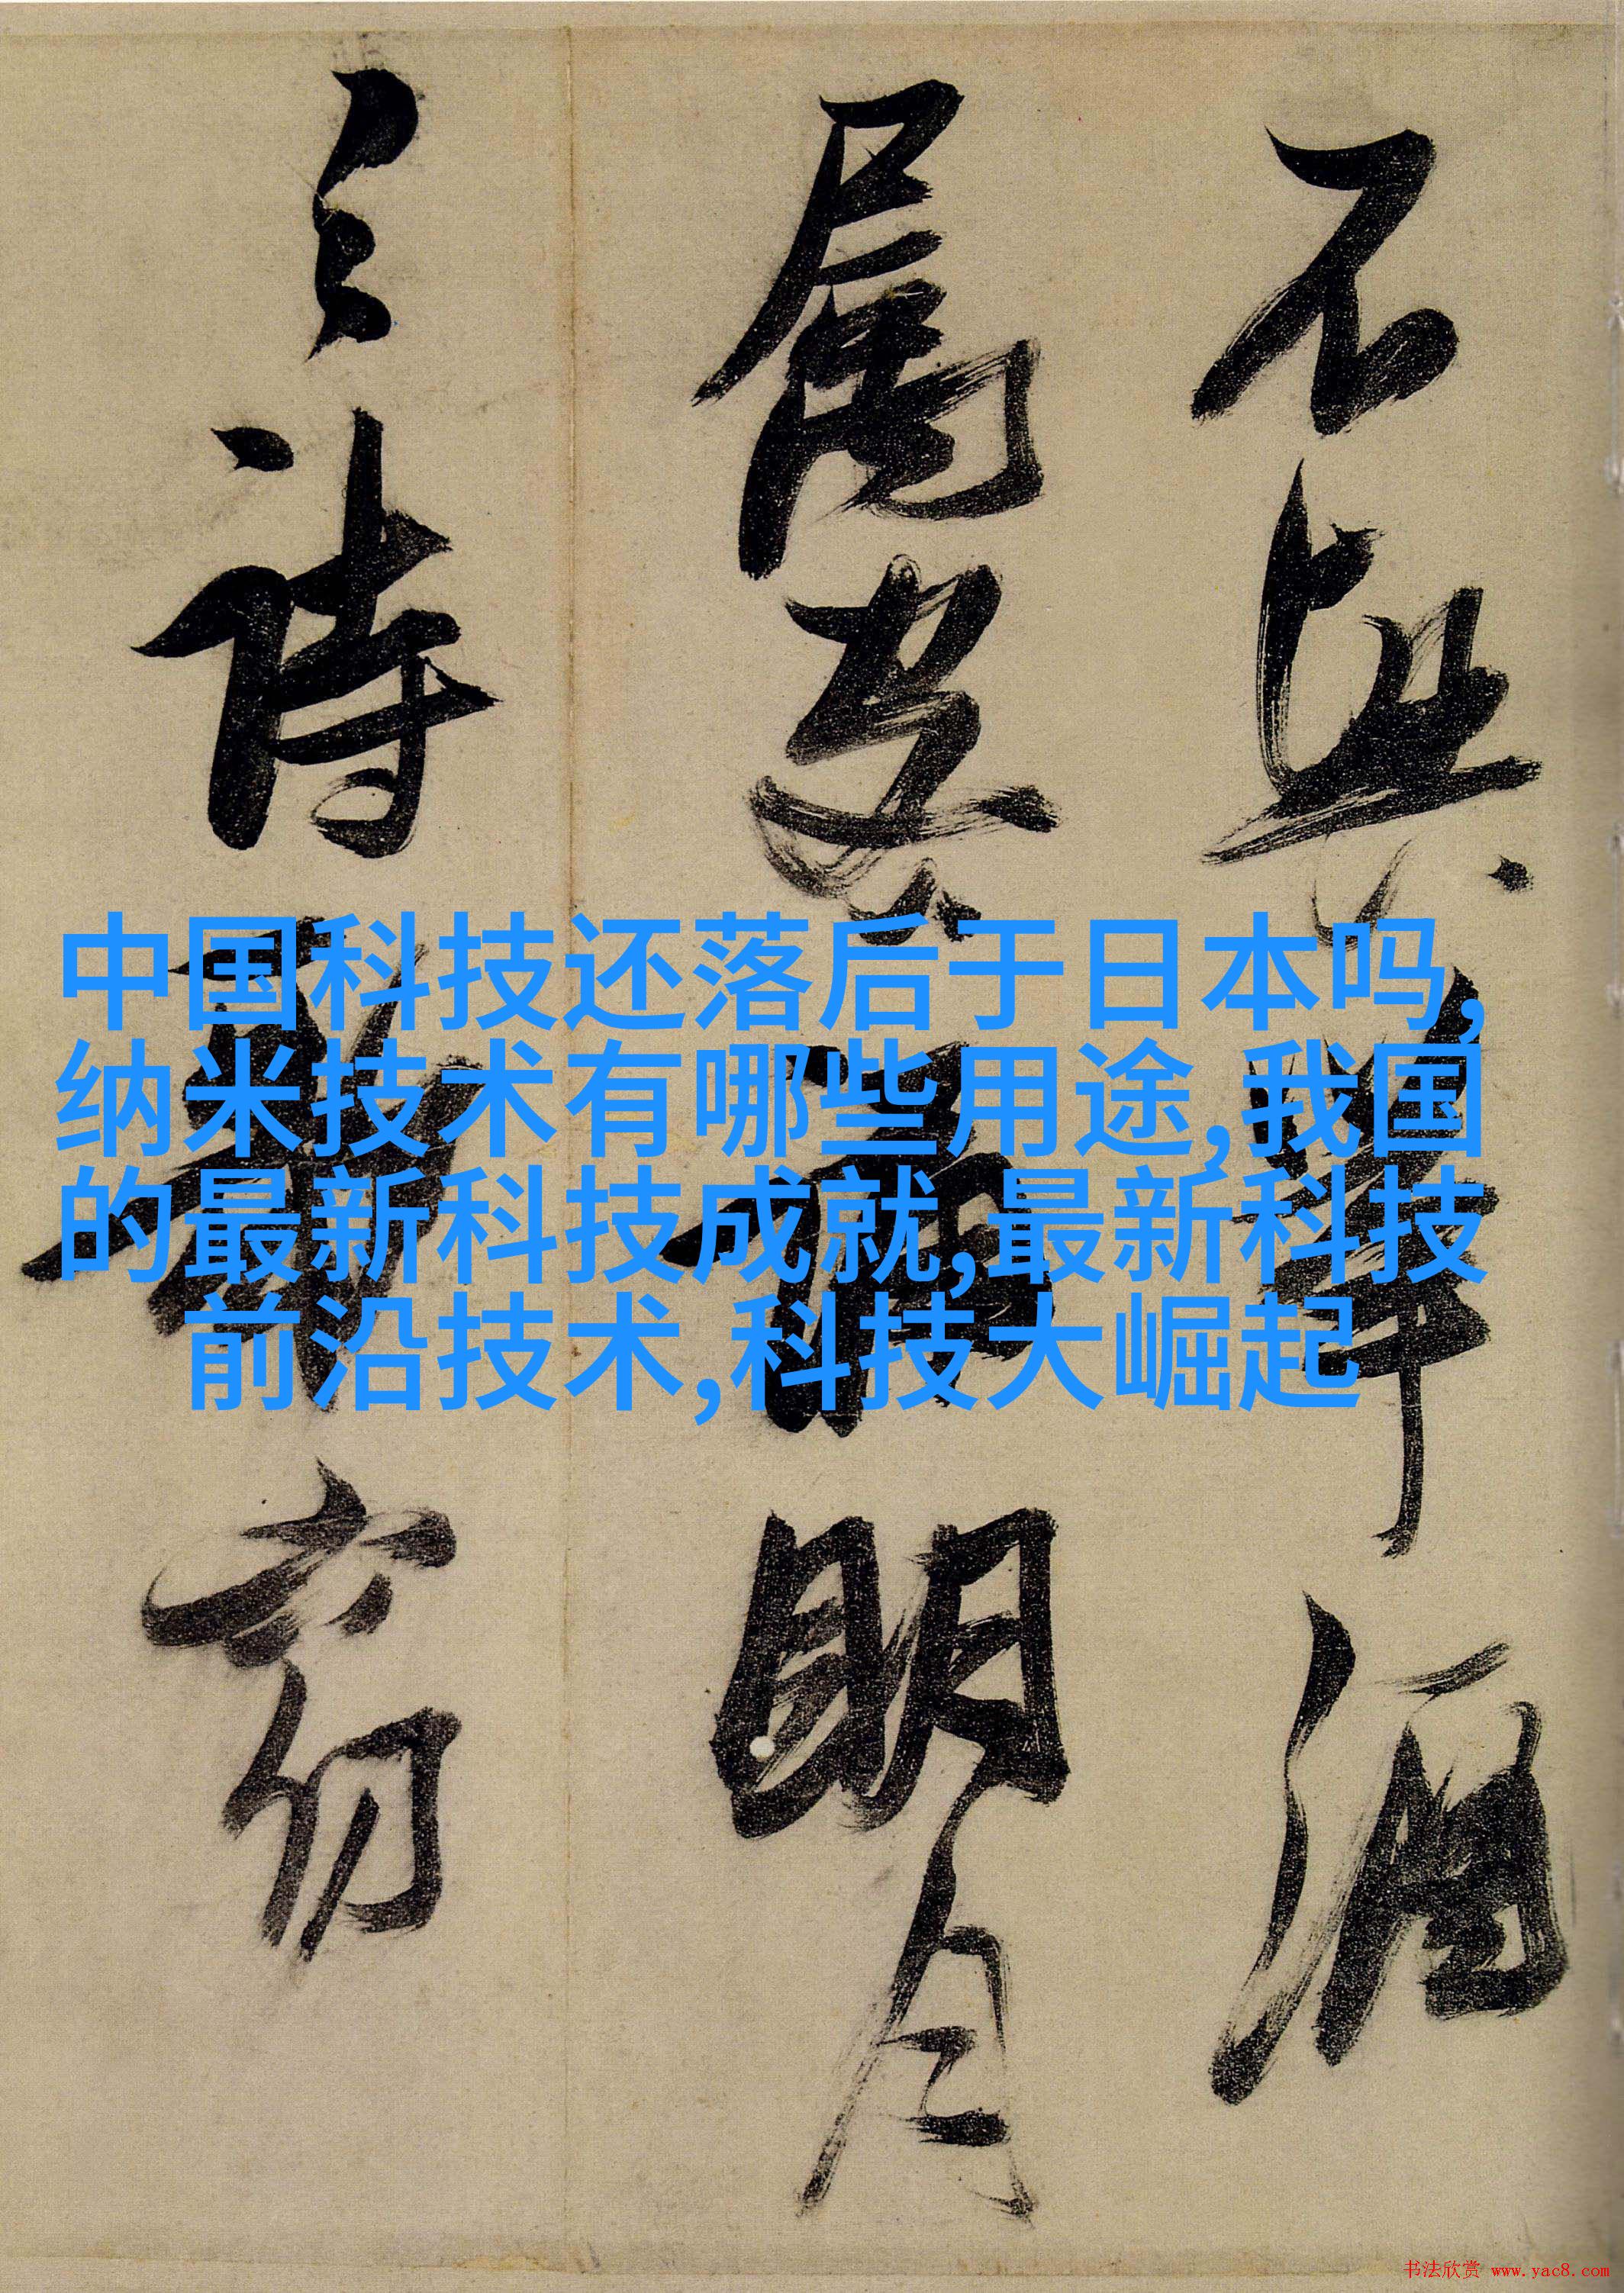 中国科技还落后于日本吗,
纳米技术有哪些用途,我国
的最新科技成就,最新科技
前沿技术,科技大崛起
不興舉酒
屬客誦明月
之詩歌窈
书法欣赏 www.yac8.com